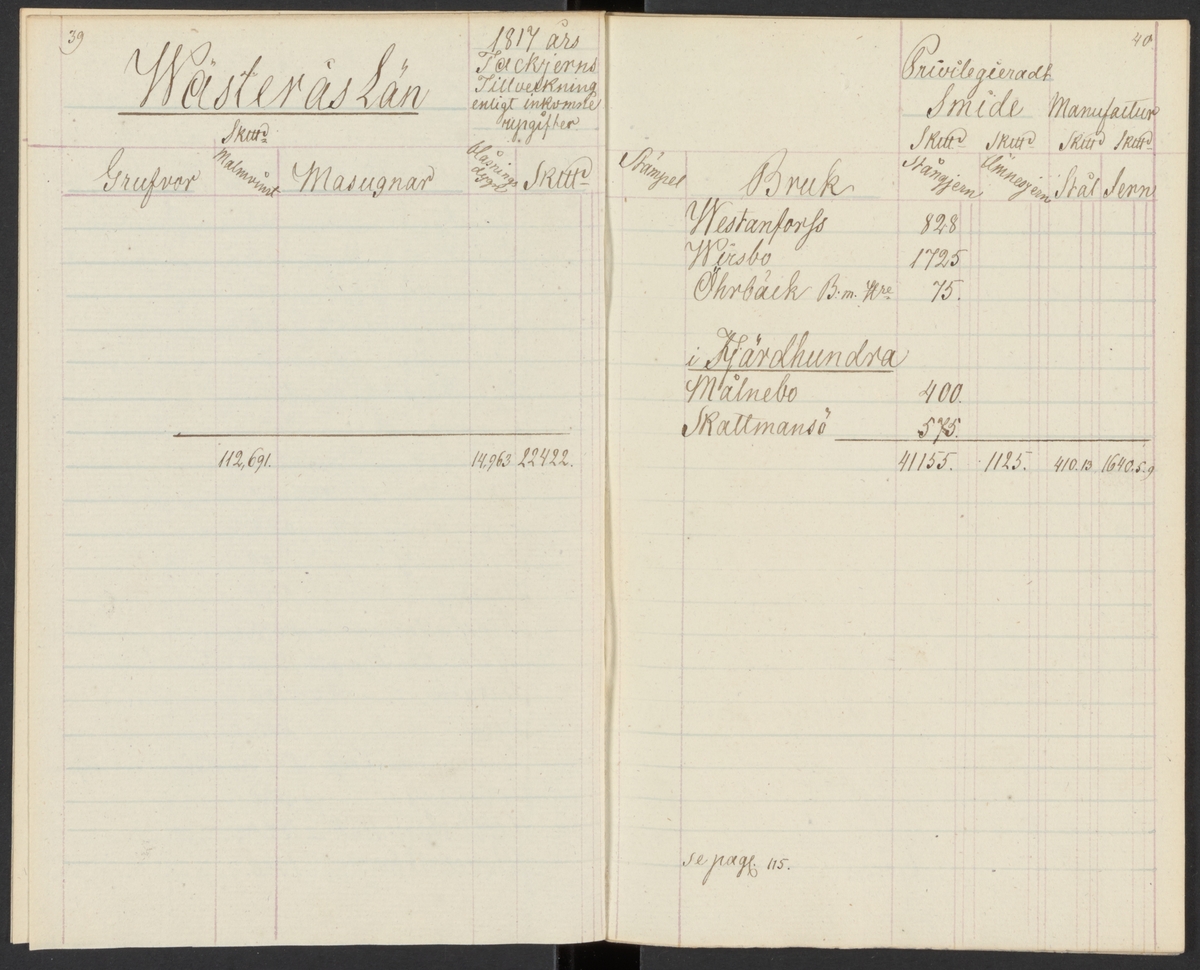 39
Wästerås Län
1817 års
Tackjerns
Tillverkning
enligt inkomne
uppgifter
Skttd
Grufvor
Malmvånt
Masugnar
Blåsnings
dygn
Skttd
112,691.
14,963
22422.
40
Privilegieradt
Smide
Manufactur
Skttd
Skttd
Skttd
Skttd
Stämpel
Bruk
Stångjern
Ämnesjern
Stål
Jern
Westanforss 828
Wirsbo 1725
Öhrbäck B.m. Kre 75.
i Fjärdhundra
Målnebo 400
Skattmansö 575.
41155. 1125. 410.13 1640.5.9
se pag. 115.